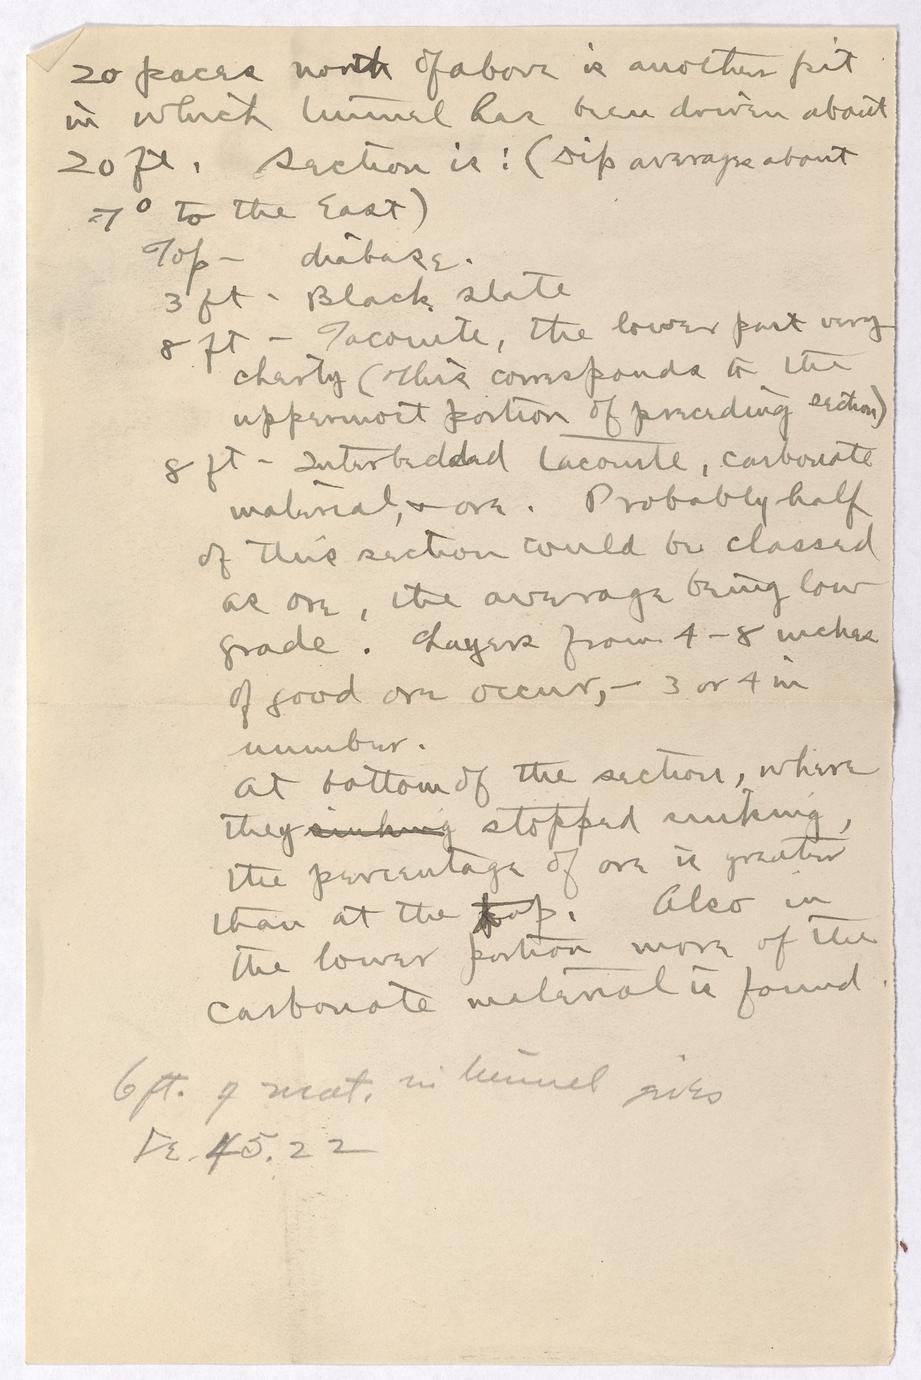 20 paces north of above is another pit
in which tunnel has been driven about
20 ft. Section is: (Dip average about
7° to the East)
Top - diabase.
3 ft - Black slate
8 ft - Taconite, the lower part very
cherty (This corresponds to the
uppermost portion of preceding section)
8 ft - Interbedded taconite, carbonate
material, + ore. Probably half
of this section could be classed
as ore, the average being low
grade. Layers from 4-8 inches
of good ore occur, - 3 or 4 in
number.
At bottom of the section, where
they sinking stopped sinking,
the percentage of ore is greater
than at the top. Also in
the lower portion more of the
carbonate material is found.
6 ft. of mat. in tunnel gives
Fe. 45.22